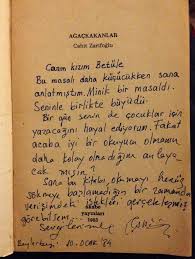 AĞAÇKAKANLAR
Cahit Zarifoğlu
Canım kızım Betüle
Bu masalı daha küçücükken sana
anlatmıştım. Minik bir masaldı.
Seninle birlikte büyüdü.
Bir gün senin de çocuklar için
yazacağını hayal ediyorum. Fakat
acaba iyi bir okuyucu olmanın
daha kolay olmadığını anlaya-
cak mısın?
Sana bu kitabı, okumayı henüz
sökmeye başlamadığın bir zamanda
verişimdeki istekleri gerçekleşmiş
görebilsem.
Sevgilerimle
yayınları
1983
Beylerbeyi 10. OCAK '84